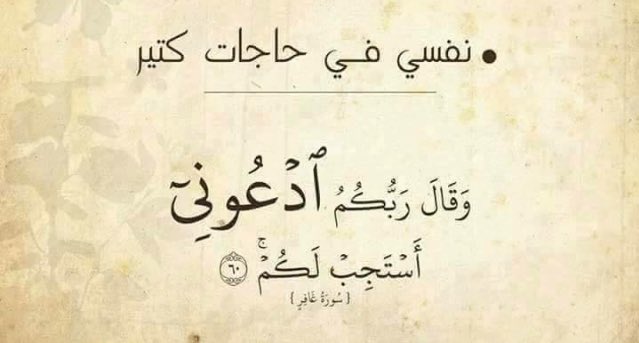 • نفسي في حاجات كتير
وَقَالَ رَبُّكُمُ ٱدۡعُونِيٓ
أَسۡتَجِبۡ لَكُمۡۚ ۝٦٠
{ سُورَةُ غَافِرٍ }